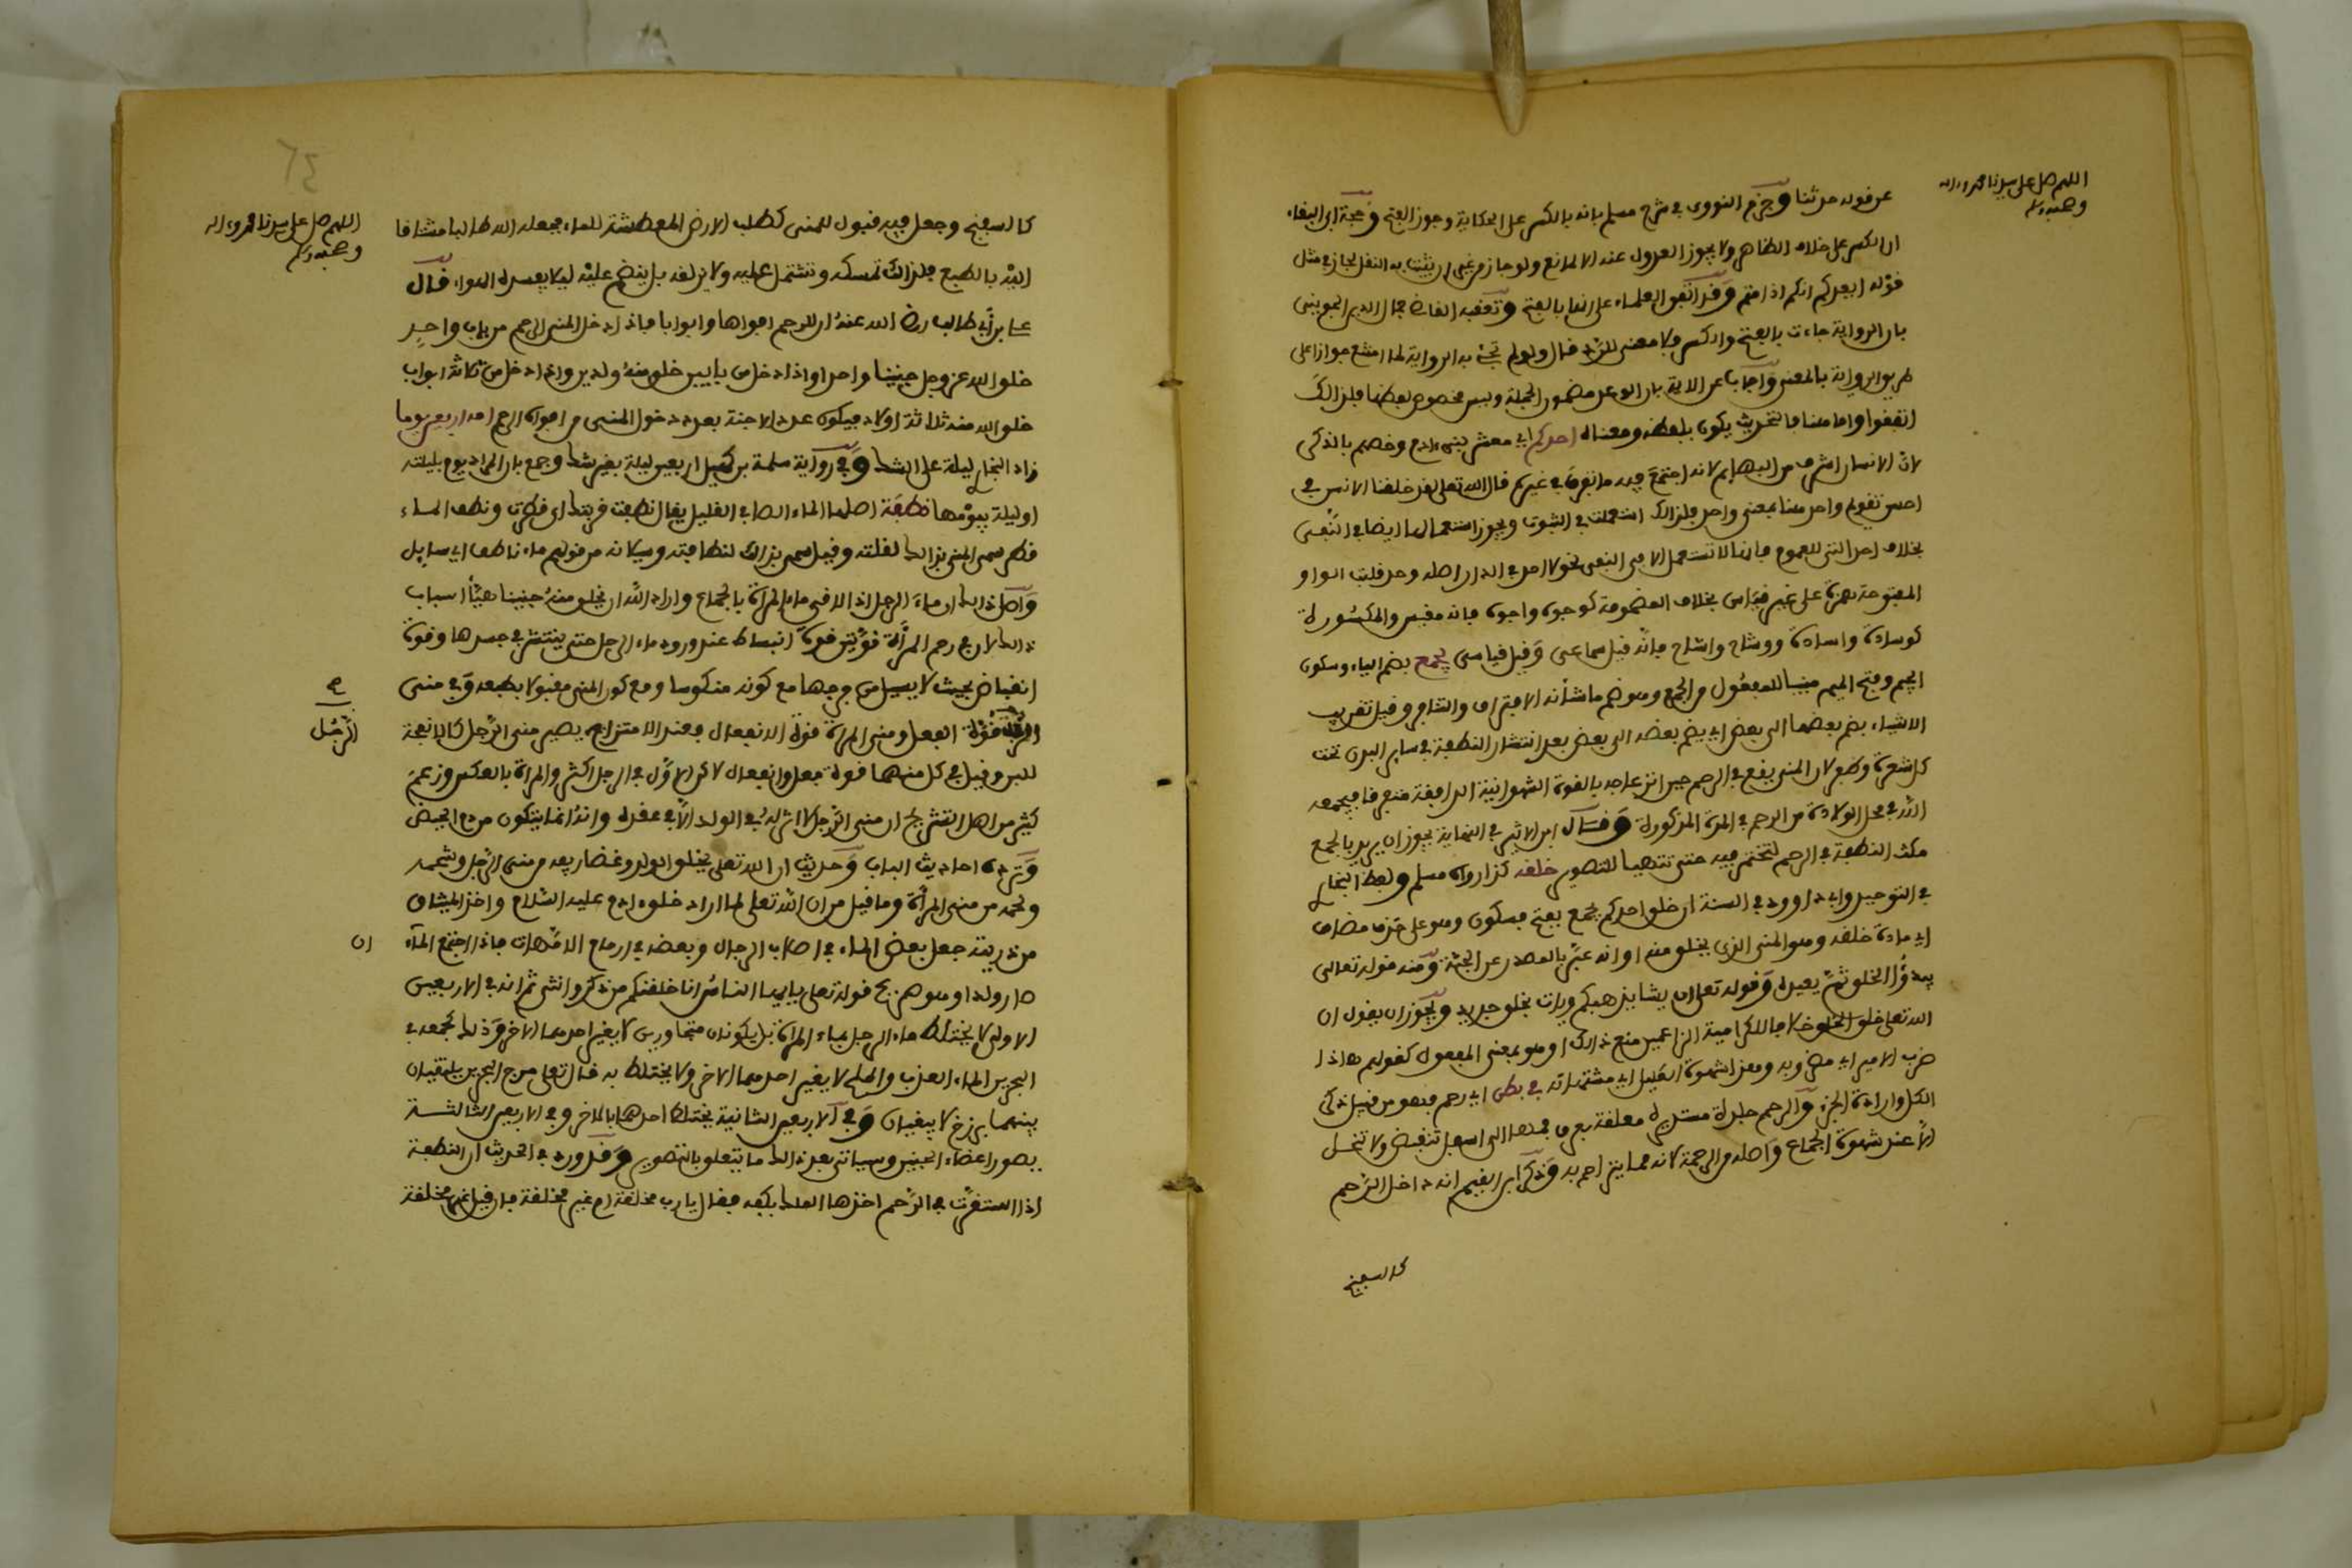 اللهم صل على سيدنا محمد وءاله
وصحبه وسلم
عن قوله حدثنا وجزم النووي في شرح مسلم بانه بالكسر على الحكاية وجوز الفتح وحجة ابي البقاء
ان الكسر على خلاف الظاهر ولا يجوز العدول عنه الا لمانع ولو جاز من غير ان يثبت به النقل لجاز في مثل
قوله ايعدكم انكم اذا متم وقد اتفق القراء على انها بالفتح وتعقبه القاضي جمال الدين الجويني
بان الرواية جاءت بالفتح والكسر فلا معنى للرد قال ولو لم تجئ به الرواية لما امتنع جوازا على
طريق الرواية بالمعنى واجاب عن الاية بان الوعد مضمون الجملة وليس بخصوص لفظها فلذلك
اتفقوا واما هنا فالتحديث يكون بلفظه ومعناه احدكم اي معشر بني ءادم وخصهم بالذكر
لان الانسان اشرف من البهايم لانه اجتمع فيه ما تفرق في غيره قال الله تعالى لقد خلقنا الانس في
احسن تقويم واحد هنا بمعنى واحد فلذلك استعملت في الثبوت ويجوز استعمالها ايضا في النفي
بخلاف احد التي للعموم فانها لا تستعمل الا في النفي نحو لا احد في الدار اصله وحد قلبت الواو
المفتوحة همزة على غير قياس بخلاف المضمومة كوجوه واجوه فانه مقيس والمكسورة
كوسادة واسادة ووشاح واشاح فانه قيل سماعي وقيل قياسي يجمع بضم الياء وسكون
الجيم وفتح الميم مبنيا للمفعول من الجمع وهو ضم ما شأنه الافتراق والتنافر وقيل تقريب
الاشياء بضم بعضها الى بعض اي يضم بعضه الى بعض بعد انتشار النطفة في ساير البدن تحت
كل شعرة وظفر لان المني يقع في الرحم حين انزعاجه بالقوة الشهوانية الدافعة متفرقا فيجمعه
الله في محل الولادة من الرحم في المدة المذكورة وقال ابن الاثير في النهاية يجوز ان يريد بالجمع
مكث النطفة في الرحم لتختمر فيه حتى تتهيأ للتصوير خلقه كذا رواه مسلم ولفظ البخاري
في التوحيد وابي داوود في السنة ان خلق احدكم يجمع بفتح فسكون وهو على حذف مضاف
اي مادة خلقه وهو المني الذي يخلق منه او انه عبر بالمصدر عن الجثة ومنه قوله تعالى
يبدؤا الخلق ثم يعيده وقوله تعالى ان يشا يذهبكم ويات بخلق جديد ويجوز ان يقول ان
الله تعالى خلق المخلوق خلافا للكرامية الزاعمين منع ذالك او هو بمعنى المفعول كقولهم هاذا
ضرب الامير اي مضروبه وهذا شهوة القبيل اي مشتهياته في بطن اي رحم فهو من قبيل ذكر
الكل وارادة الجزء والرحم جلدة مستديرة معلقة بعرق فمها الى اسفل تنقبض ولا تنحل
الا عند شهوة الجماع واصله من الرحمة لانه مما يتراحم به وذكر ابن القيم انه داخل الرحم
كالسفنج
اللهم صل على سيدنا محمد وءاله
وصحبه وسلم
كالسفنج وجعل فيه قبول للمني كطلب الارض المعطشة للماء فجعله الله طالبا مشتاقا
اليه بالطبع فلذالك تمسكه وتشتمل عليه ولا تزلقه بل ينضم عليه ليلا يفسده الهواء قال
علي بن أبي طالب رضي الله عنه ان للرحم افواها وابوابا فاذا دخل المني الرحم من باب واحد
خلق الله عز وجل جنينا واحدا واذا دخل من بابين خلق منه ولدين واذا دخل من ثلاثة ابواب
خلق الله منه ثلاثة اولاد فيكون عدد الاجنة بعدد دخول المني من افواه الرحم امه اربعين يوما
زاد البخاري ليلة على الشك وفي رواية سلمة بن كهيل اربعين ليلة بغير شك وجمع بان المراد يوم بليلته
او ليلة بيومها نطفة اصلها الماء الصافي القليل يقال نطفت قربتك اي قطرت ونطف الماء
قطر سمي المني بذالك لقلته وقيل سمي بذالك لنظافته وسيلانه من قولهم ماء ناطف اي سايل
واصل ذالك ان ماء الرجل اذا لاقى ماء المرأة بالجماع واراد الله ان يخلق منه جنينا هيأ اسباب
ذالك لان في رحم المرأة قوتين قوة انبساط عند ورود ماء الرجل حتى ينتشر في جسدها وقوة
انقباض بحيث لا يسيل من فرجها مع كونه منكوسا ومع كون المني مقبولا بطبعه وفي مني
صح
الرجل
قوة الفعل ومني المرأة قوة الانفعال فعند الامتزاج يصير مني الرجل كالانفحة
للبن وقيل في كل منهما قوة فعل وانفعال لاكن الاول في الرجل اكثر والمرأة بالعكس وزعم
كثير من اهل التشريح ان مني الرجل لا اثر له في الولد الا في عقده وانه انما يتكون من دم الحيض
وترده احاديث الباب وحديث ان الله تعلى يخلق الولد وغضاريفه من مني الرجل وشحمه
ولحمه من مني المرأة وما قيل من ان الله تعلى لما اراد خلق ءادم عليه السلام واخذ الميثاق
ان
من ذريته جعل بعض الماء في اصلاب الرجال وبعضه في ارحام الامهات فاذا اجتمع الماء
صار ولدا وهو صريح قوله تعلى يايها الناس انا خلقنكم من ذكر وانثى ثم انه في الاربعين
الاولى لا يختلط ماء الرجل بماء المرأة بل يكونان متجاورين لا يغير احدهما الاخر وذلك كجمعه في
البحرين الماء العذب والملح لا يغير احدهما الاخر ولا يختلط به قال تعلى مرج البحرين يلتقيان
بينهما برزخ لا يبغيان وفي الاربعين الثانية يختلط احدهما بالاخر وفي الاربعين الثالثة
يصور اعضاء الجنين وسياتي بعد ذالك ما يتعلق بالتصوير وقد ورد في الحديث ان النطفة
اذا استقرت في الرحم اخذها الملك بكفه فقال يا رب مخلقة ام غير مخلقة فان قيل غير مخلقة